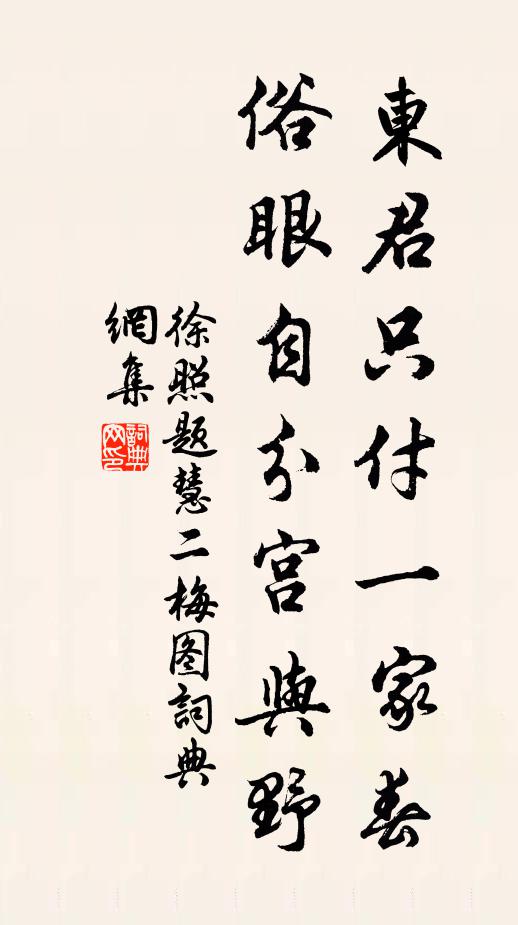 東君只付一家春
俗眼自分宫與野
徐照題慧二梅图詞典
網集
詞典
网印